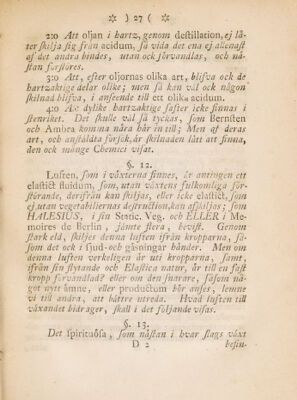 ☼ ) 27 ( ☼
2:0 Att oljan i hartz, genom destillation, ej lå-
ter skilja sig från acidum, så vida det ena ej allenast
af det andra bindes, utan ock förvandlas, och nå-
stan förstöres.
3:0 Att, efter oljornas olika art, blifva ock de
hartzaktige delar olike; men så kan väl ock någon
skilnad blifva, i anseende till ett olika acidum.
4:0 At dylike hartzaktige safter icke finnas i
stenriket. Det skulle väl så tyckas, som Bernsten
och Ambra komma nära här in till; Men af deras
art, och anstäldta försök, är skilnaden lått att finna,
den ock månge Chemici visat.
§. 12.
Luften, som i växterna finnes, är antingen ett
elastict fluidum, som, utan växtens fulkomliga för-
störande, derifrån kan skiljas, eller icke elastict, som
ej, utan vegetabiliernas destruction, kan afskiljas; som
HALESIUS, i sin Static. Veg. och ELLER i Me-
moires de Berlin, jämte flera, bevist. Genom
stark eld, skiljes denna luften ifrån kropparna, så-
som det ock i sjud- och gåsningar händer. Men om
denna luften verkeligen är uti kropparna, samt,
ifrån sin flytande och Elastica natur, är till en fast
kropp förvandlad? eller om den snarare, såsom nå-
got nytt ämne, eller productum bör anses, lemne
vi til andra, att båttre utreda. Hvad luften till
våxandet bidrager, skall i det följande visas.
§. 13.
Det spirituösa, som nåstan i hvar slags växt
D 2
befin-